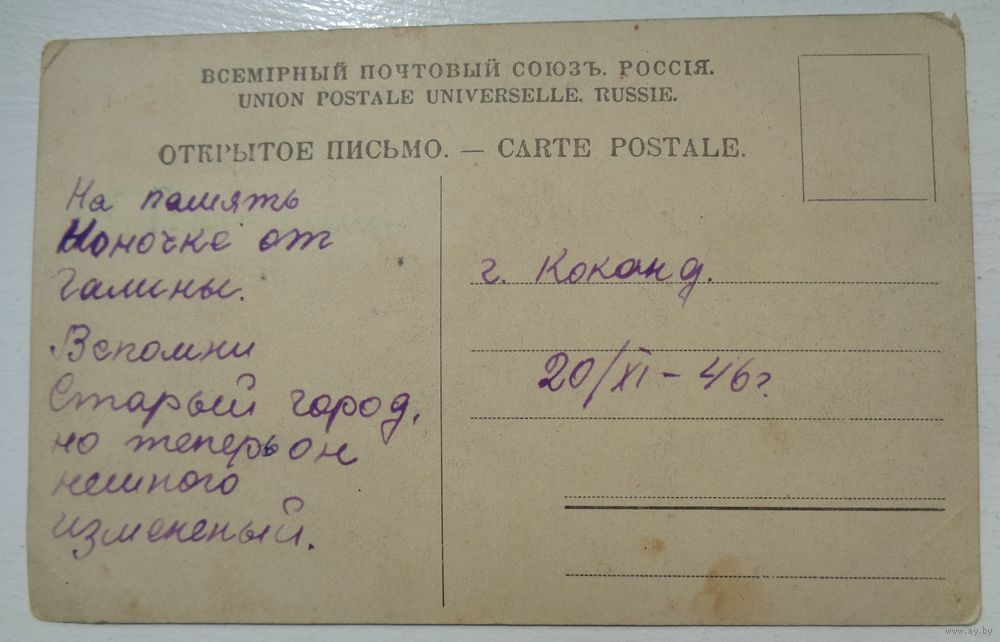 ВСЕМІРНЫЙ ПОЧТОВЫЙ СОЮЗЪ. РОССІЯ.
UNION POSTALE UNIVERSELLE. RUSSIE.
ОТКРЫТОЕ ПИСЬМО. — CARTE POSTALE.
На память
Ноночке от
Галины.
Вспомни
Старый город,
но теперь он
немного
измененый.
г. Коканд.
20/XI – 46 г.
www.ay.by